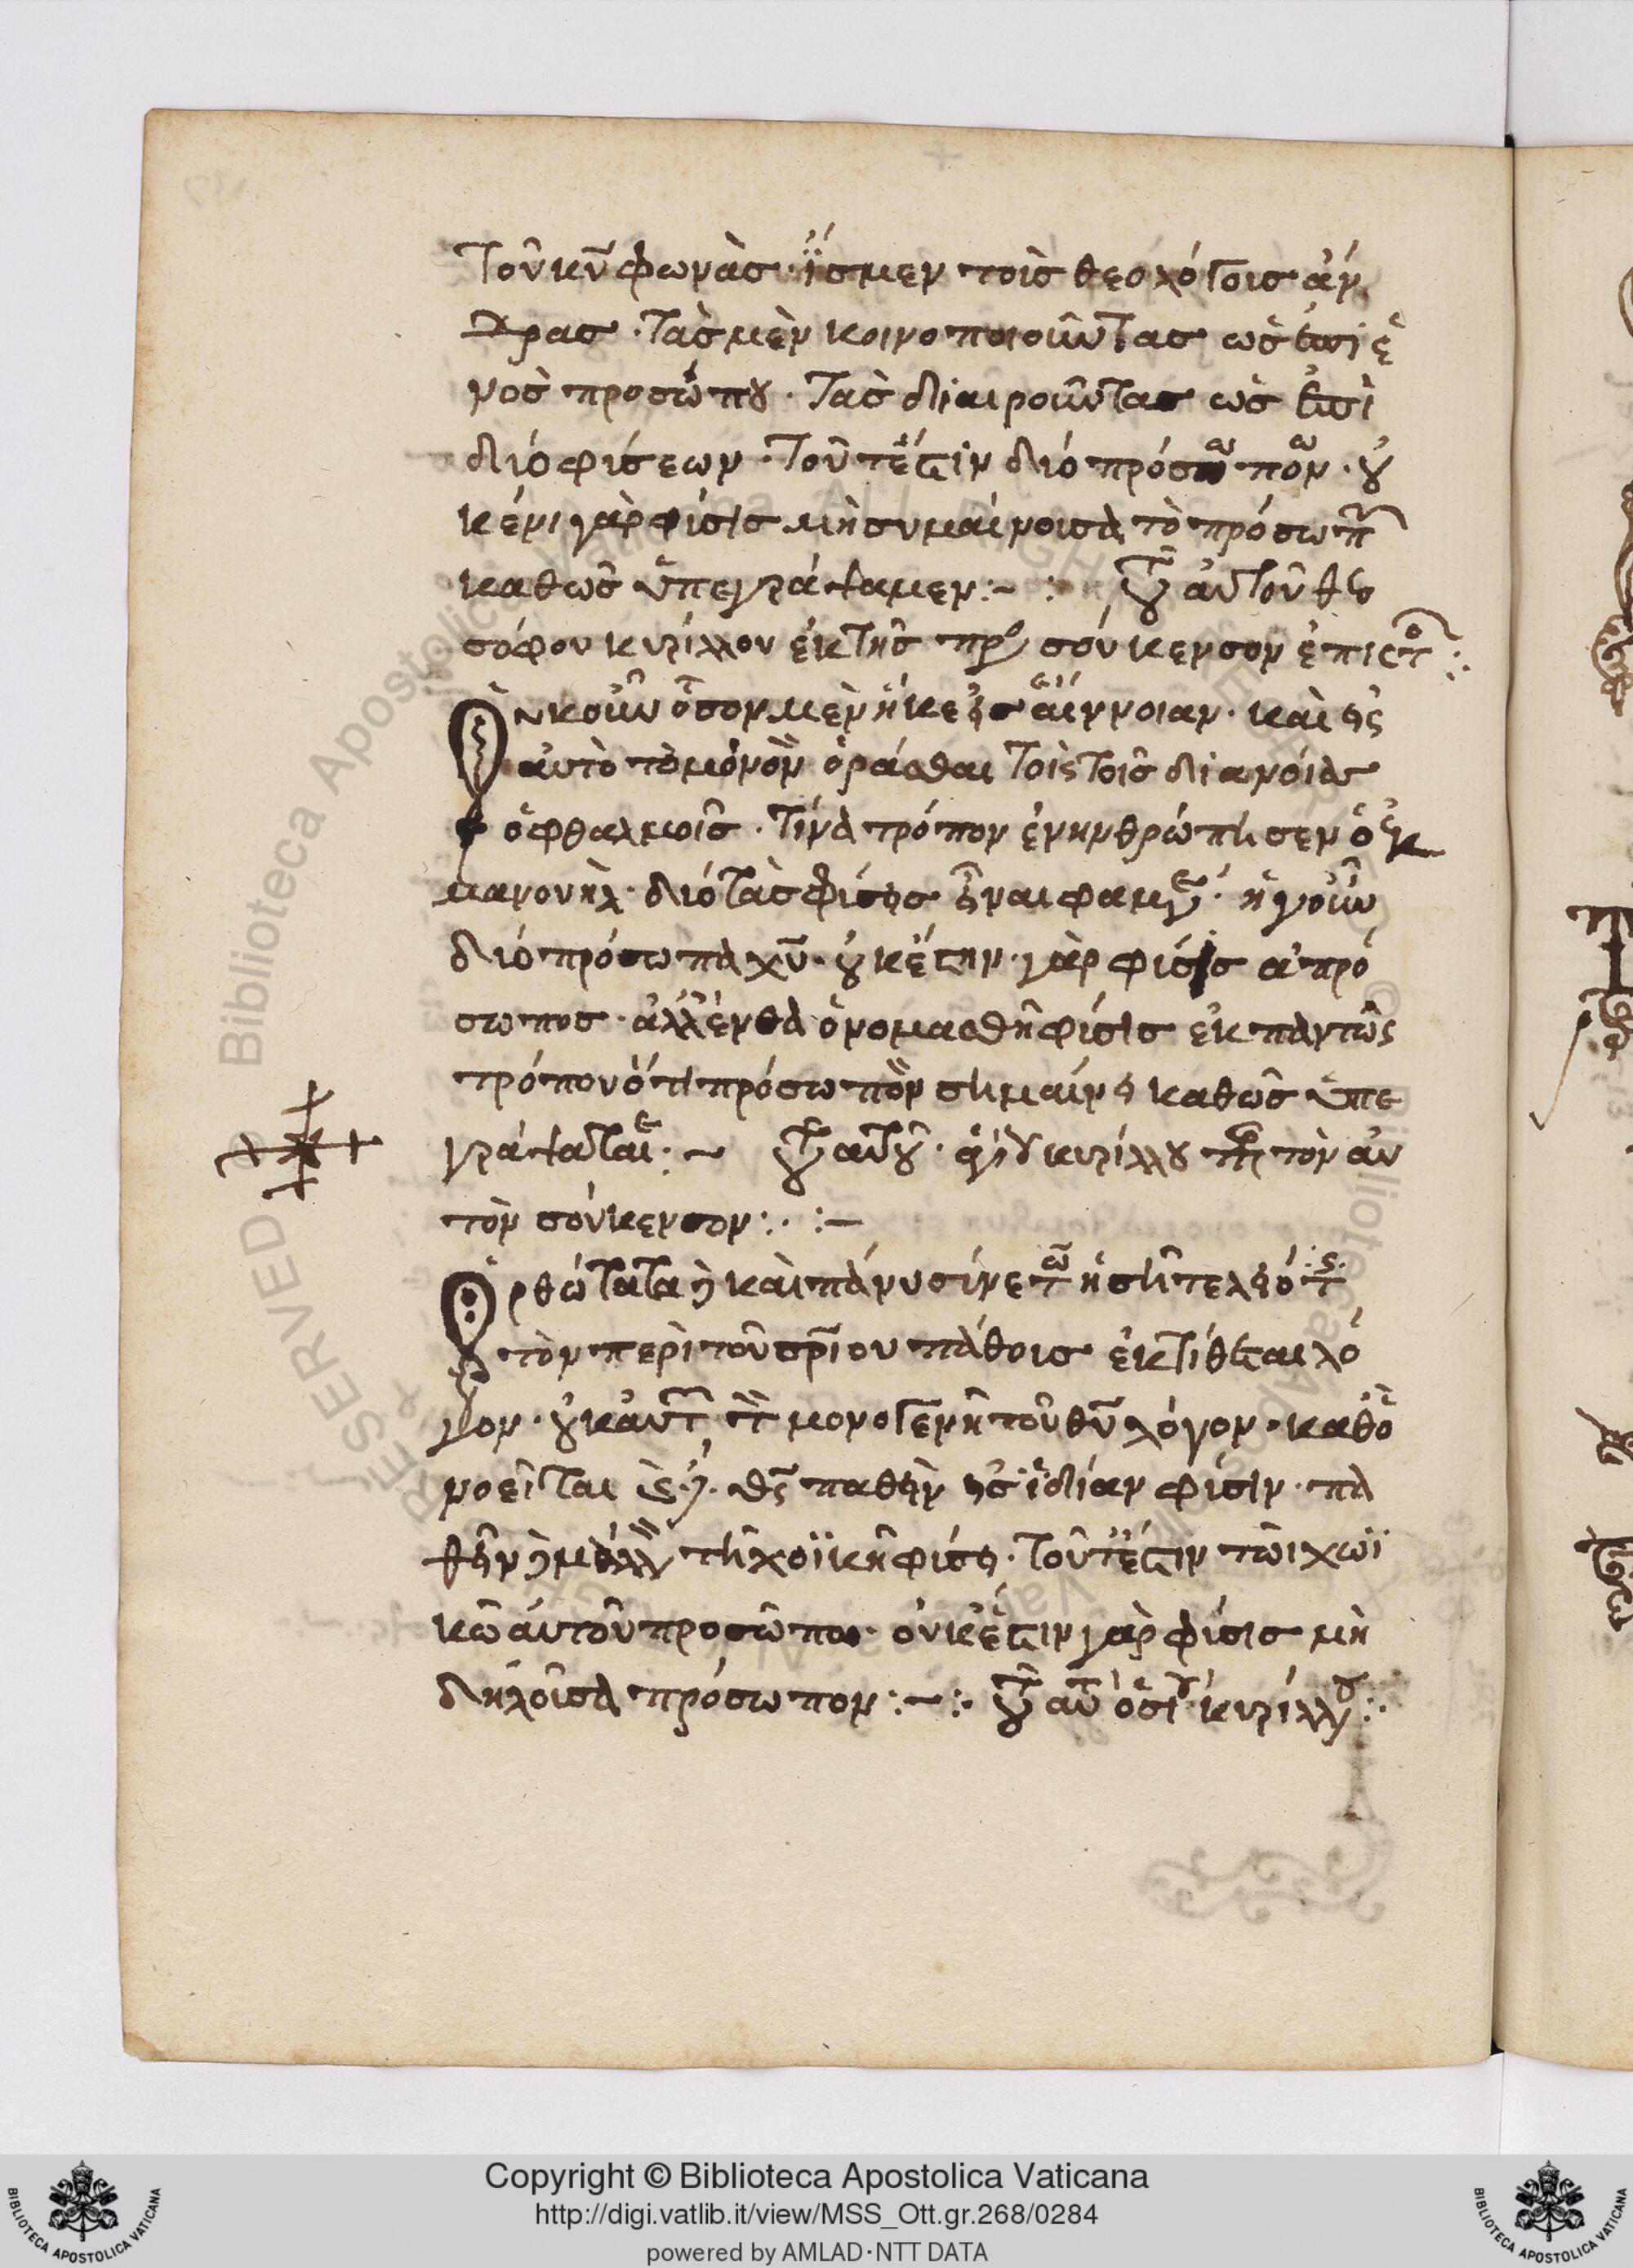 Τοῦ κυ φωνὰσ· ἴσμεν τοὶσ θεολόγοισ ἀν
δρασ· Τὰσ μὲν κοινοποιοῦντασ ὡσ ἐπὶ ἑ
νοσ προσώπου· Τὰσ διαιροῦντασ ὡσ ἐπὶ
διόφίσεων· Τοῦτέστιν διό πρόσώπων· οὐ
κένι γὰρ φίσισ μὴ συμαίνοισα τὸ πρόσωπ
καθὼσ ὑπεγράψαμεν:~ : Τοῦ ἀυτοῦ θεο
σόφου κυρίλλου ἐκ τῆσ πρ σούκενσον ἐπιστο:
Οὐκοῦν ὅσον μὲν ἥκει εἰσ ἔννοιαν· καὶ εἰς
αὐτὸ τὸ μόνον ὁράσθαι τοῖς τοῖσ διανοίασ
ὀφθαλμοῖσ· Τίνα τρόπον ἐνηνθρώπησεν ὁ ἐμ
μανουὴλ· διό τὰσ φίσεισ εἶναι φαμέν· ἤγουν
διό πρόσωπα χυ· οὐκέστην γὰρ φίσισ ἀπρό
σωποσ· ἀλλἔνθα ὀνομασθῆ φίσισ ἐκ παντὼς
τρόπου ὅτη πρόσωπον σημαίνει καθὼσ ὑπε
γράψαται:~ Τοῦ αυτοῦ· ἁγίου κυρίλλου πρ τὸν αυ
τὸν σούκενσον:· :–
Ορθώτατα δὲ καὶ πάνυ σίνετω ἡ σῆ τελειότ
τὸν περὶ τοῦ σρίου πάθοισ ἐκτίθεται λό
γον· οὐκ αυτ τ μονογενῆ τοῦ θυ λόγον· καθὸ
νοεῖται θς παθεῖν εἰσ ἰδίαν φίσιν· πα
θεῖν δὲ μᾶλλον τῆ χοϊκῆ φίσει· Τοῦτέστιν τῶι χωϊ
κῶ ἀυτοῦ προσώπω· οὐκέστιν γὰρ φίσισ μὴ
δηλοῖσα πρόσωπον:~: Τοῦ αυτ ὁσίου κυρίλλου:·
Copyright © Biblioteca Apostolica Vaticana
http://digi.vatlib.it/view/MSS_Ott.gr.268/0284
powered by AMLAD·NTT DATA